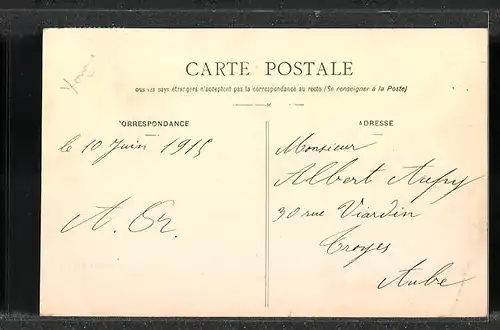 CARTE POSTALE
ous les pays étrangers n'acceptent pas la correspondance au recto (Se renseigner à la Poste)
ORRESPONDANCE
ADRESSE
le 10 Juin 1915
Monsieur
Albert Aupy
30 rue Viardin
Troyes
Aube
A.